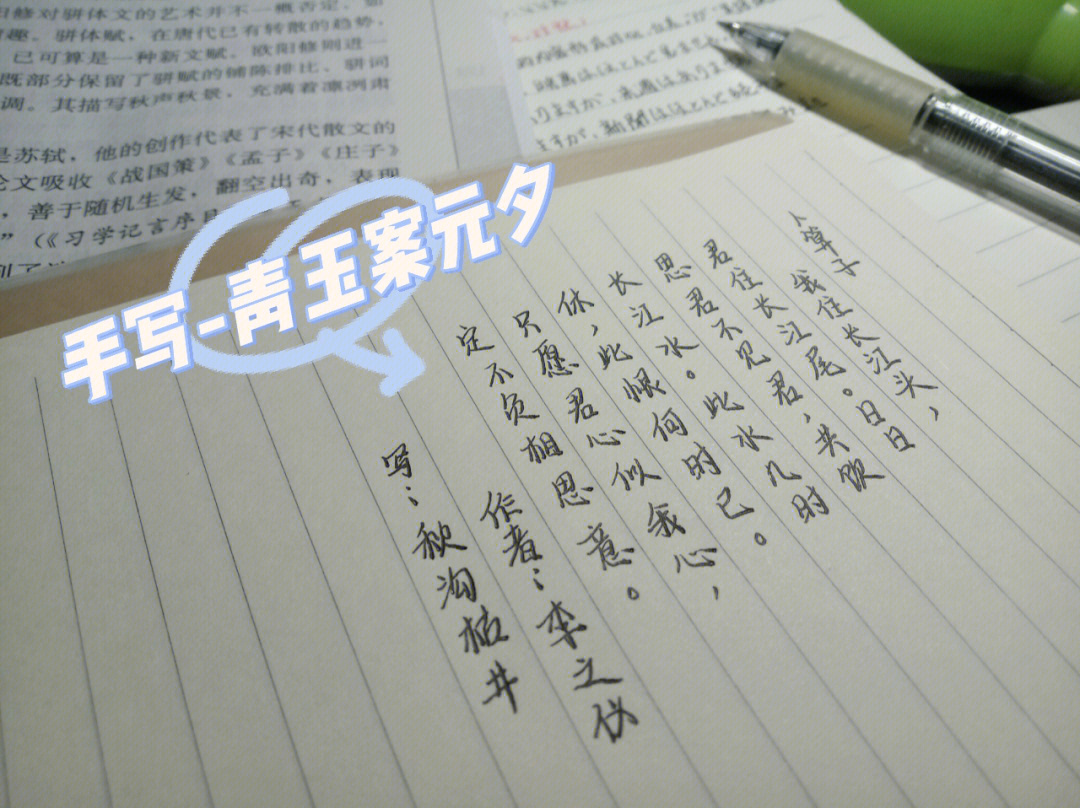 修对骈体文的艺术并不一概否定，如
趣。骈体赋，在唐代已有转散的趋势，
已可算是一种新文赋。欧阳修则进一
既部分保留了骈赋的铺陈排比、骈词
调。其描写秋声秋景，充满着凛冽肃
是苏轼，他的创作代表了宋代散文的
论文吸收《战国策》《孟子》《庄子》
，善于随机生发，翻空出奇，表现
”（《习学记言序目
手写-青玉案元夕
卜算子
我住长江头，
君住长江尾。日日
思君不见君，共饮
长江水。此水几时
休，此恨何时已。
只愿君心似我心，
定不负相思意。
作者：李之仪
写：秋沟枯井